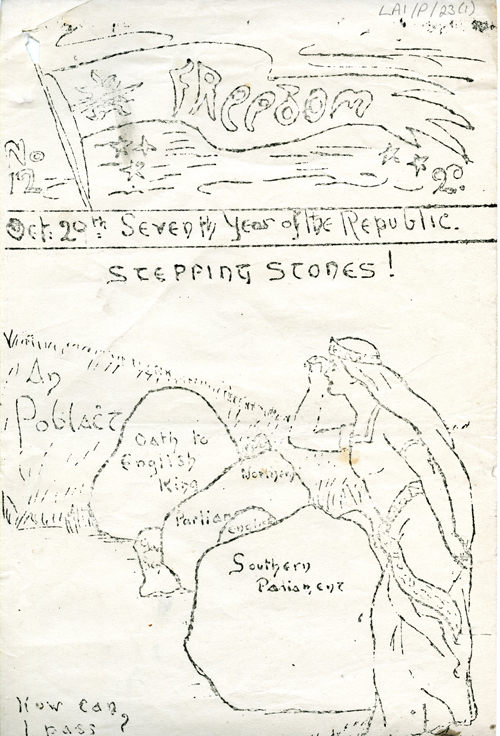 LA1/P/23(1)
FREEDOM
No
12
2D.
Oct. 20th Seventh Year of the Republic.
STEPPING STONES!
An
Poblact
Oath to
English
King
Northern
Parliament
English
Southern
Parliament
How can
I pass?